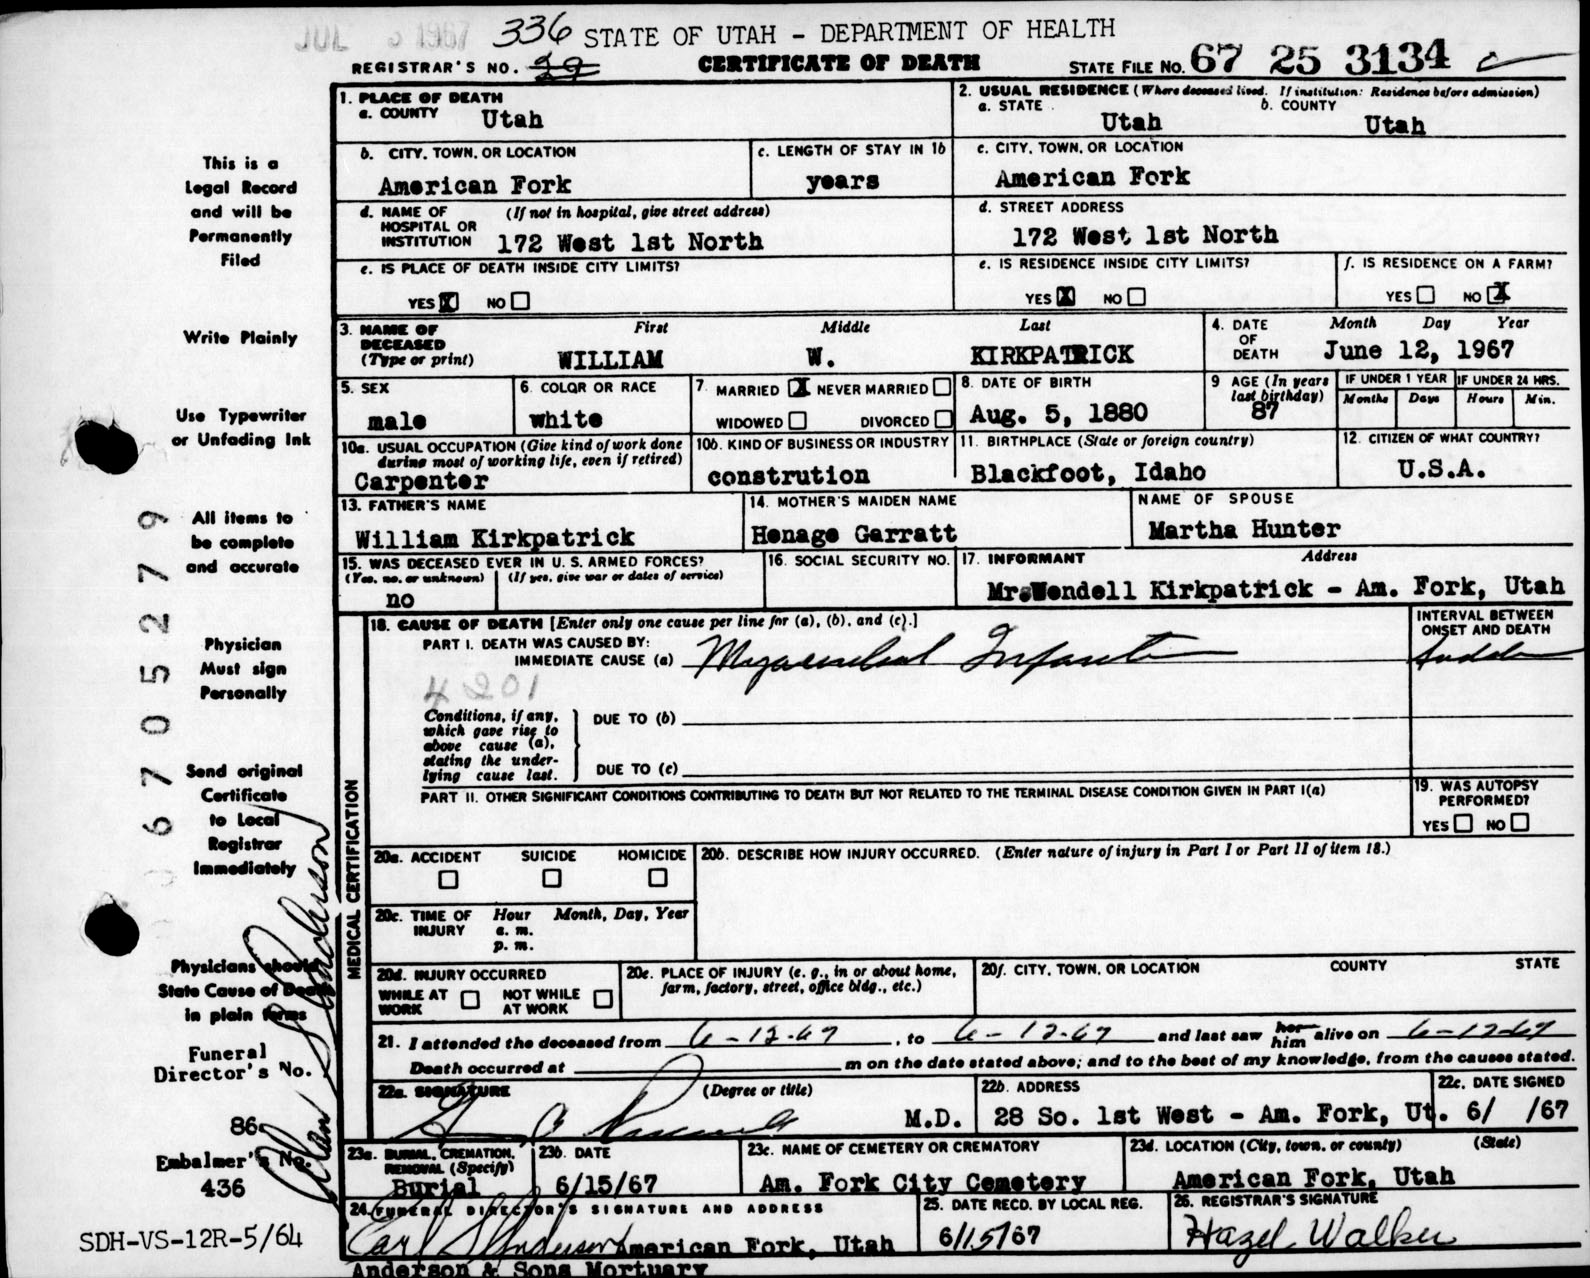 JUL 6 1967
336 STATE OF UTAH - DEPARTMENT OF HEALTH
REGISTRAR'S NO. 29 CERTIFICATE OF DEATH STATE FILE NO. 67 25 3134
This is a
Legal Record
and will be
Permanently
Filed
Write Plainly
Use Typewriter
or Unfading Ink
All items to
be complete
and accurate
Physician
Must sign
Personally
Send original
Certificate
to Local
Registrar
Immediately
Physicians should
State Cause of Death
in plain terms
Funeral
Director's No.
86
Embalmer's No.
436
SDH-VS-12R-5/64
6705279
1. PLACE OF DEATH
a. COUNTY Utah
2. USUAL RESIDENCE (Where deceased lived. If institution: Residence before admission)
a. STATE Utah b. COUNTY Utah
b. CITY, TOWN, OR LOCATION American Fork
c. LENGTH OF STAY IN 1b years
c. CITY, TOWN, OR LOCATION American Fork
d. NAME OF HOSPITAL OR INSTITUTION (If not in hospital, give street address) 172 West 1st North
d. STREET ADDRESS 172 West 1st North
e. IS PLACE OF DEATH INSIDE CITY LIMITS? YES X NO
e. IS RESIDENCE INSIDE CITY LIMITS? YES X NO
f. IS RESIDENCE ON A FARM? YES NO X
3. NAME OF DECEASED (Type or print) First Middle Last
WILLIAM W. KIRKPATRICK
4. DATE OF DEATH Month Day Year
June 12, 1967
5. SEX male
6. COLOR OR RACE white
7. MARRIED X NEVER MARRIED
WIDOWED DIVORCED
8. DATE OF BIRTH Aug. 5, 1880
9 AGE (In years last birthday) 87
IF UNDER 1 YEAR Months Days
IF UNDER 24 HRS. Hours Min.
10a. USUAL OCCUPATION (Give kind of work done during most of working life, even if retired) Carpenter
10b. KIND OF BUSINESS OR INDUSTRY constrution
11. BIRTHPLACE (State or foreign country) Blackfoot, Idaho
12. CITIZEN OF WHAT COUNTRY? U.S.A.
13. FATHER'S NAME William Kirkpatrick
14. MOTHER'S MAIDEN NAME Henage Garratt
NAME OF SPOUSE Martha Hunter
15. WAS DECEASED EVER IN U. S. ARMED FORCES?
(Yes, no, or unknown) (If yes, give war or dates of service)
no
16. SOCIAL SECURITY NO.
17. INFORMANT Address
Mr. Wendell Kirkpatrick - Am. Fork, Utah
MEDICAL CERTIFICATION
18. CAUSE OF DEATH [Enter only one cause per line for (a), (b), and (c).]
INTERVAL BETWEEN ONSET AND DEATH
PART I. DEATH WAS CAUSED BY:
IMMEDIATE CAUSE (a) Myocardial Infarct Sudden
4201
Conditions, if any, which gave rise to above cause (a), stating the underlying cause last.
DUE TO (b)
DUE TO (c)
PART II. OTHER SIGNIFICANT CONDITIONS CONTRIBUTING TO DEATH BUT NOT RELATED TO THE TERMINAL DISEASE CONDITION GIVEN IN PART I(a)
19. WAS AUTOPSY PERFORMED?
YES NO
20a. ACCIDENT SUICIDE HOMICIDE
20b. DESCRIBE HOW INJURY OCCURRED. (Enter nature of injury in Part I or Part II of item 18.)
20c. TIME OF INJURY Hour Month, Day, Year
a. m.
p. m.
20d. INJURY OCCURRED
WHILE AT WORK NOT WHILE AT WORK
20e. PLACE OF INJURY (e. g., in or about home, farm, factory, street, office bldg., etc.)
20f. CITY, TOWN, OR LOCATION COUNTY STATE
21. I attended the deceased from 6-12-67, to 6-12-67 and last saw her him alive on 6-12-67
Death occurred at m on the date stated above; and to the best of my knowledge, from the causes stated.
22a. SIGNATURE (Degree or title) M.D.
22b. ADDRESS 28 So. 1st West - Am. Fork, Ut.
22c. DATE SIGNED 6/ /67
23a. BURIAL, CREMATION, REMOVAL (Specify) Burial
23b. DATE 6/15/67
23c. NAME OF CEMETERY OR CREMATORY Am. Fork City Cemetery
23d. LOCATION (City, town, or county) (State) American Fork, Utah
24. FUNERAL DIRECTOR'S SIGNATURE AND ADDRESS
Anderson American Fork, Utah
Anderson & Sons Mortuary
25. DATE RECD. BY LOCAL REG. 6/15/67
26. REGISTRAR'S SIGNATURE Hazel Walker